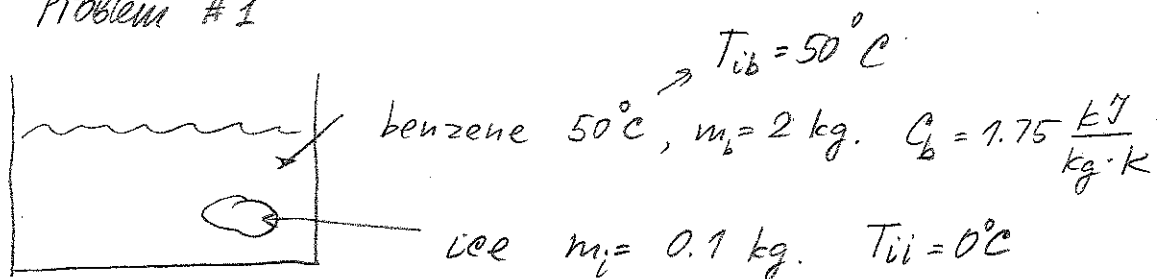 Problem #1
T_ib = 50°C
benzene 50°C, m_b = 2 kg. C_b = 1.75 kJ/kg·K
ice m_i = 0.1 kg. T_ii = 0°C